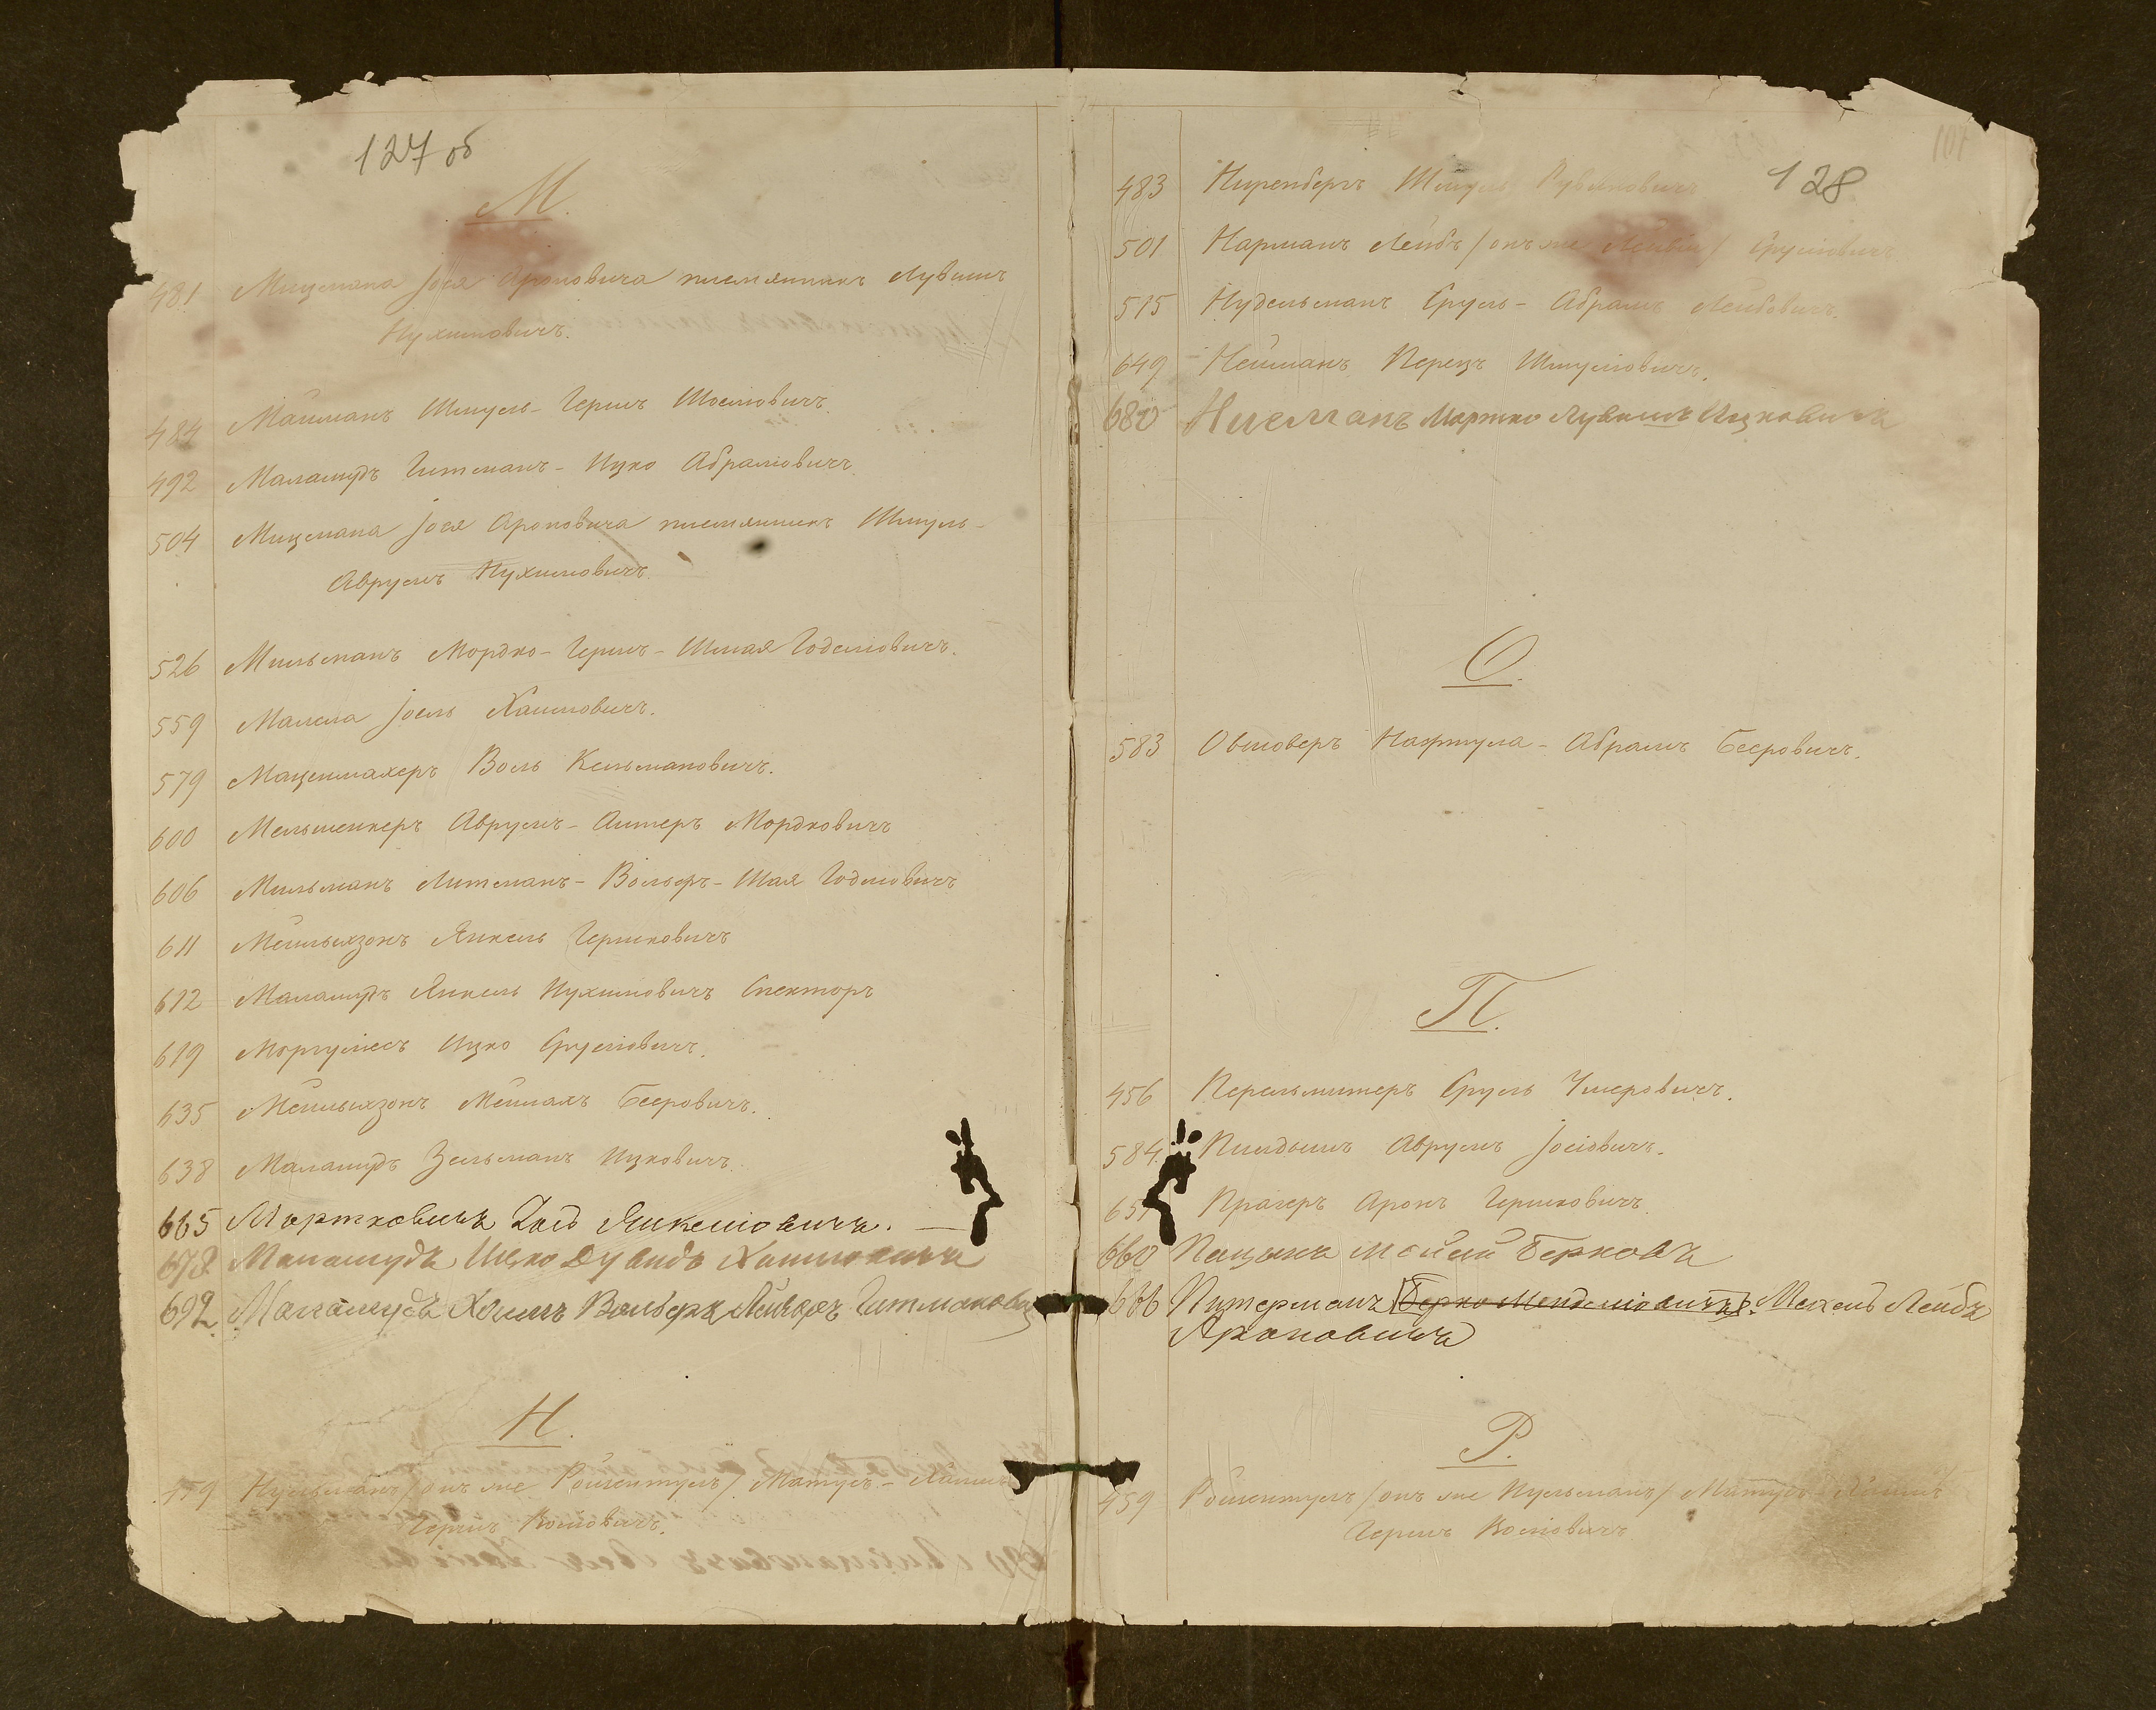 127 об
М.
481 Мицмана Іося Ароновича племянникъ Лувишъ
Нухимовичъ.
484 Майманъ Шмуль-Гершъ Шоеловичъ.
492 Маламудъ Гитманъ-Ицко Абрамовичъ.
504 Мицмана Іося Ароновича племянникъ Шмуль-
Аврумъ Нухимовичъ.
526 Мильманъ Мордко-Гершъ-Шмая Годелиовичъ.
559 Іоель Хаимовичъ.
579 Маценмахеръ Воль Кельмановичъ.
600 Мельшенкеръ Аврумъ-Алтеръ Мордковичъ
606 Мильманъ Литманъ-Вольфъ-Шая Годлиовичъ
611 Мейльихзонъ Янкель Гершковичъ
612 Маламудъ Янкель Нухимовичъ Спекторъ
619 Моргулисъ Ицко Сруліовичъ.
635 Мейльихзонъ Меилахъ Бееровичъ.
638 Маламудъ Зельманъ Ицковичъ.
665 Мортковичъ Янкеліовичъ.
678 Маламудъ Ицко Дувидъ Хаимовичъ
692 Маламудъ Хаимъ Вольфъ Гитманови
Н.
459 Нусьманъ/онъ же Роитентулъ/ Матусъ-Хаимъ
Гершъ
128
101
483 Ниренбергъ Шмуль Рувиновичъ
501 Нарманъ Лейбъ/онъ же / Сруліовичъ
515 Нудельманъ Сруль-Абрамъ Лейбовичъ.
649 Нейманъ Перецъ Шмуліовичъ.
680 Нисманъ Мортко Лувишъ Ицковичъ
О.
583 Овшоверъ Нафтула-Абрамъ Бееровичъ.
П.
456 Перельмитеръ Сруль Умеровичъ.
584. Аврумъ Іосіовичъ.
Прагеръ Аронъ Гершковичъ.
660 Пацына Мойсей Берковъ
666 Питерманъ Берко Менделіовичъ. Мехель Лейбъ
Ароновичъ
Р.
459 Роитентулъ/онъ же Нусьманъ/ Матусъ Хаимъ
Гершъ